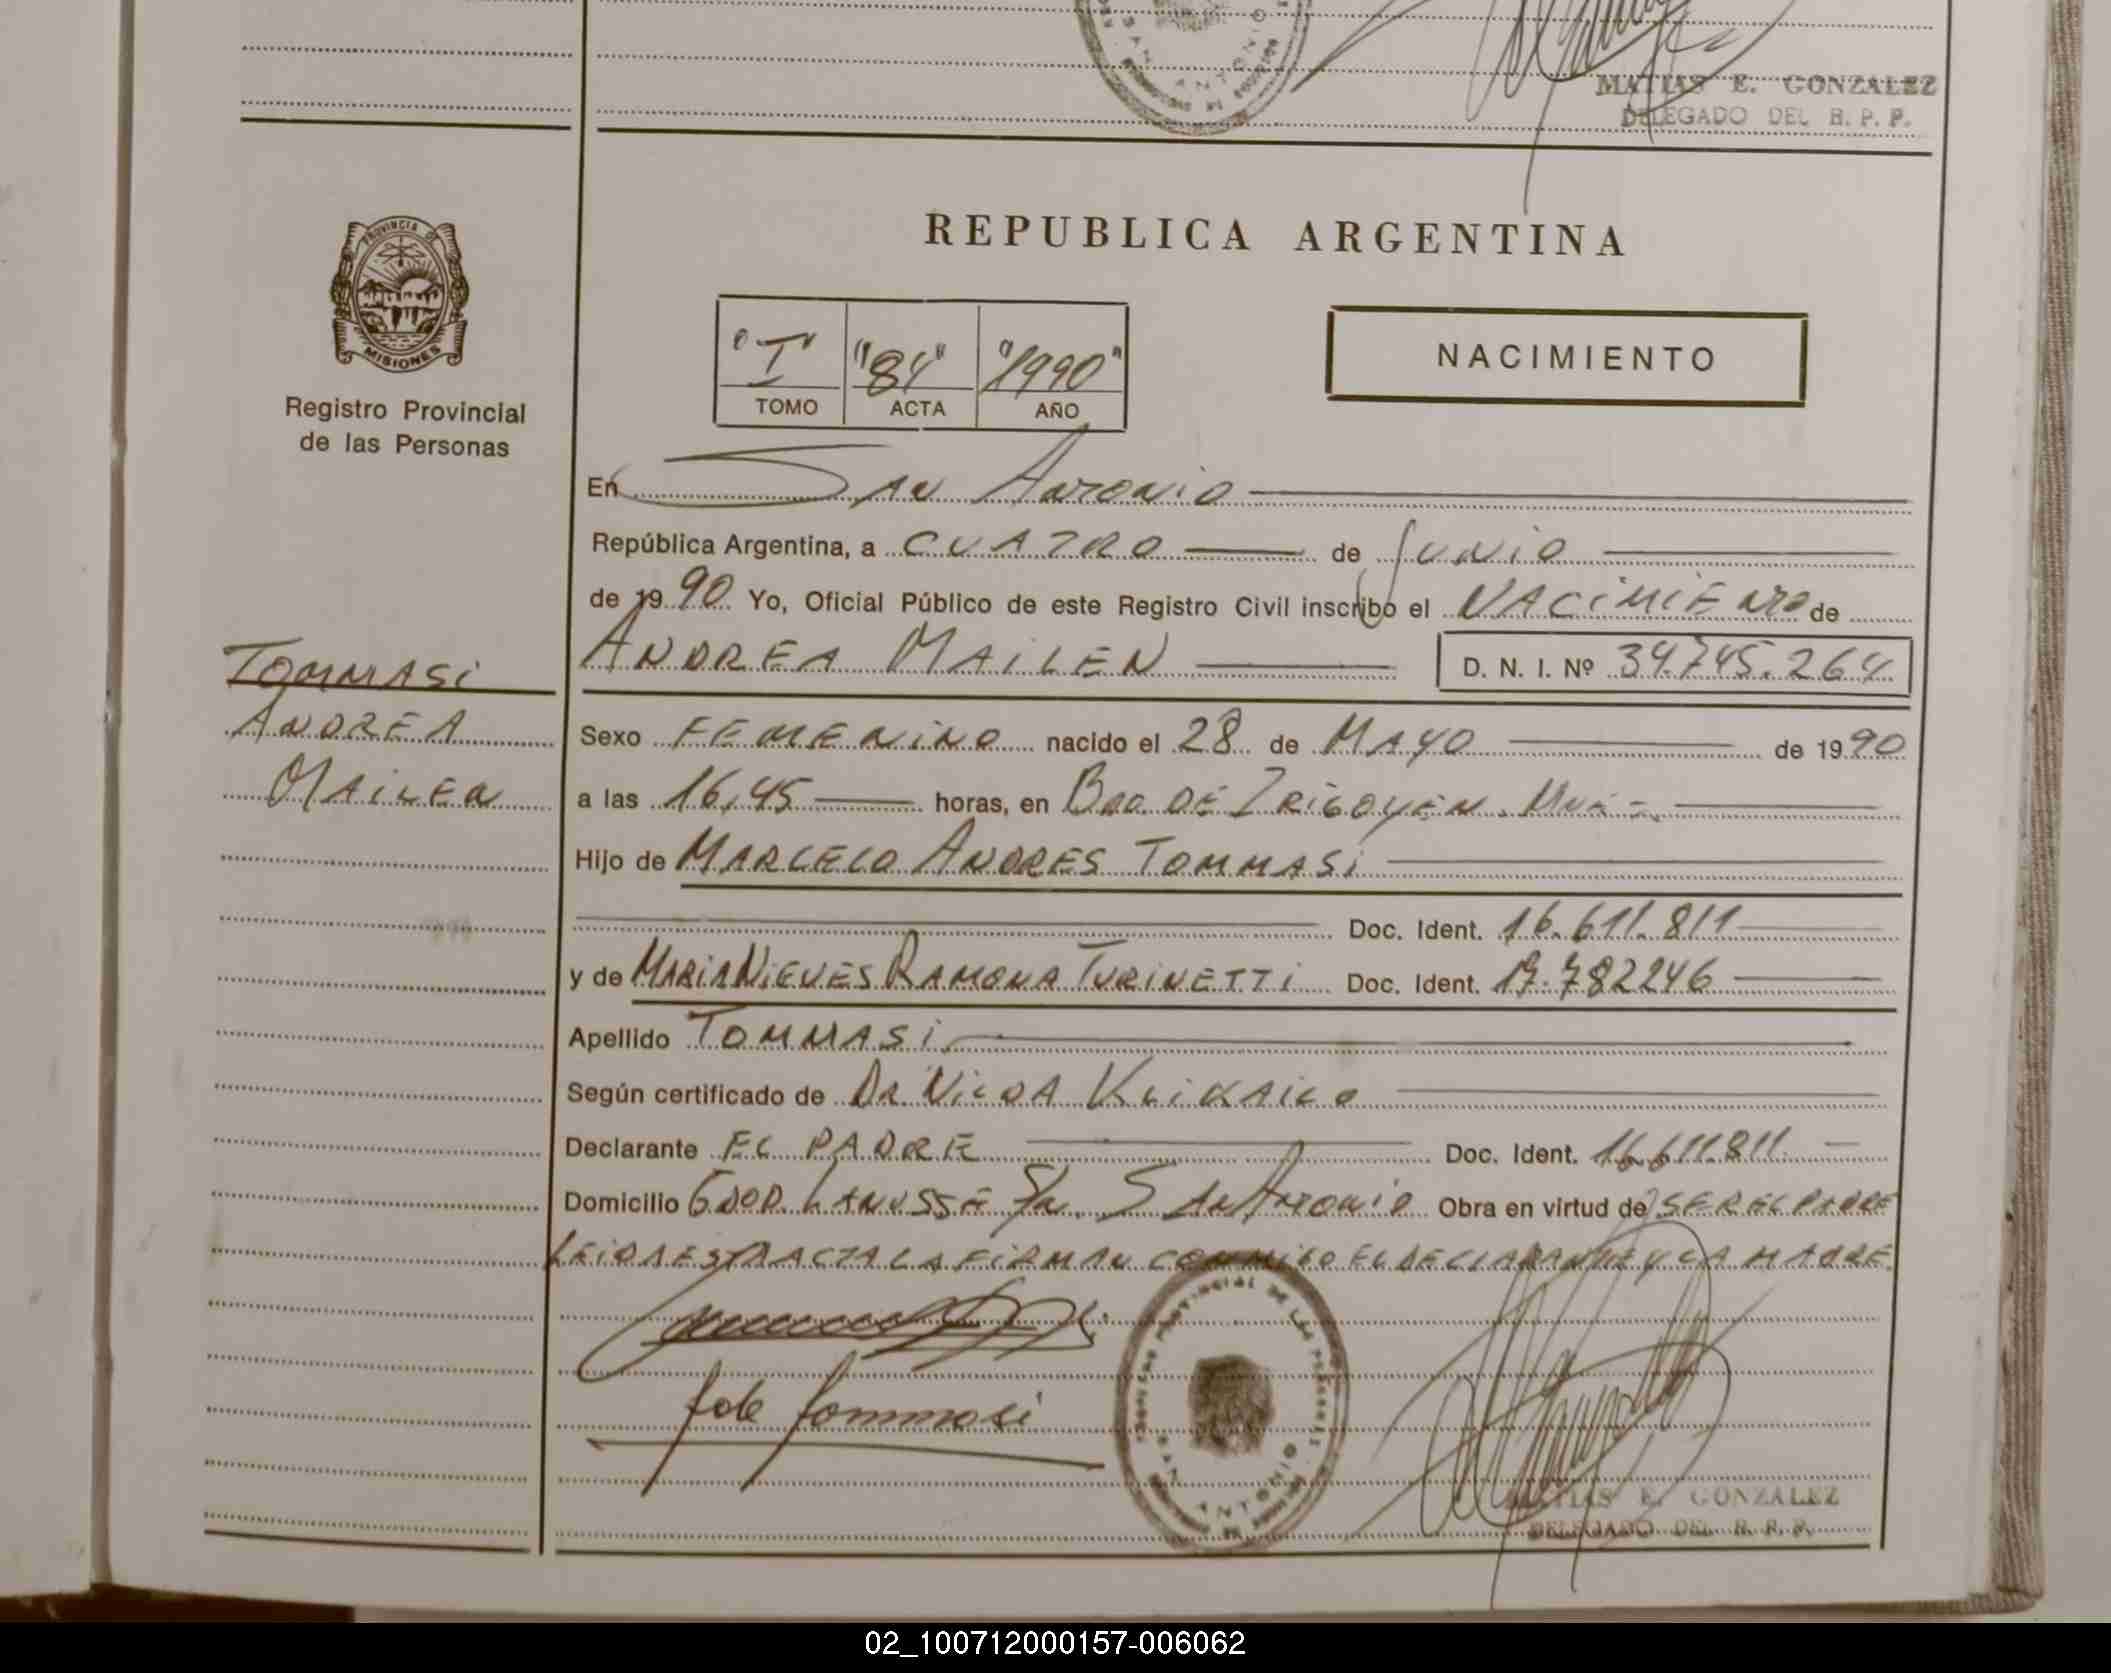 SAN ANTONIO
MATIAS E. GONZALEZ
DELEGADO DEL R. P. P.
PROVINCIA DE
MISIONES
Registro Provincial
de las Personas
REPUBLICA ARGENTINA
"I" "84" "1990"
TOMO ACTA AÑO
NACIMIENTO
En SAN ANTONIO
República Argentina, a CUATRO de JUNIO
de 1990 Yo, Oficial Público de este Registro Civil inscribo el NACIMIENTO de
ANDREA MAILEN D. N. I. Nº 34.745.264
TOMMASI
ANDREA
MAILEN
Sexo FEMENINO nacido el 28 de MAYO de 1990
a las 16,45 horas, en BDO. DE IRIGOYEN. MNES
Hijo de MARCELO ANDRES TOMMASI
Doc. Ident. 16.611.811
y de MARIA NIEVES RAMONA TURINETTI Doc. Ident. 17.782246
Apellido TOMMASI
Según certificado de DR. NILDA
Declarante EL PADRE Doc. Ident. 16.611.811
Domicilio GDOR. LANUSSE S/N. SAN ANTONIO Obra en virtud de SER EL PADRE
LEIDA ESTA ACTA LA FIRMAN CONMIGO EL DECLARANTE Y LA MADRE.
de Tommasi
REGISTRO PROVINCIAL DE LAS PERSONAS
SAN ANTONIO
MATIAS E. GONZALEZ
DELEGADO DEL R. P. P.
02_100712000157-006062